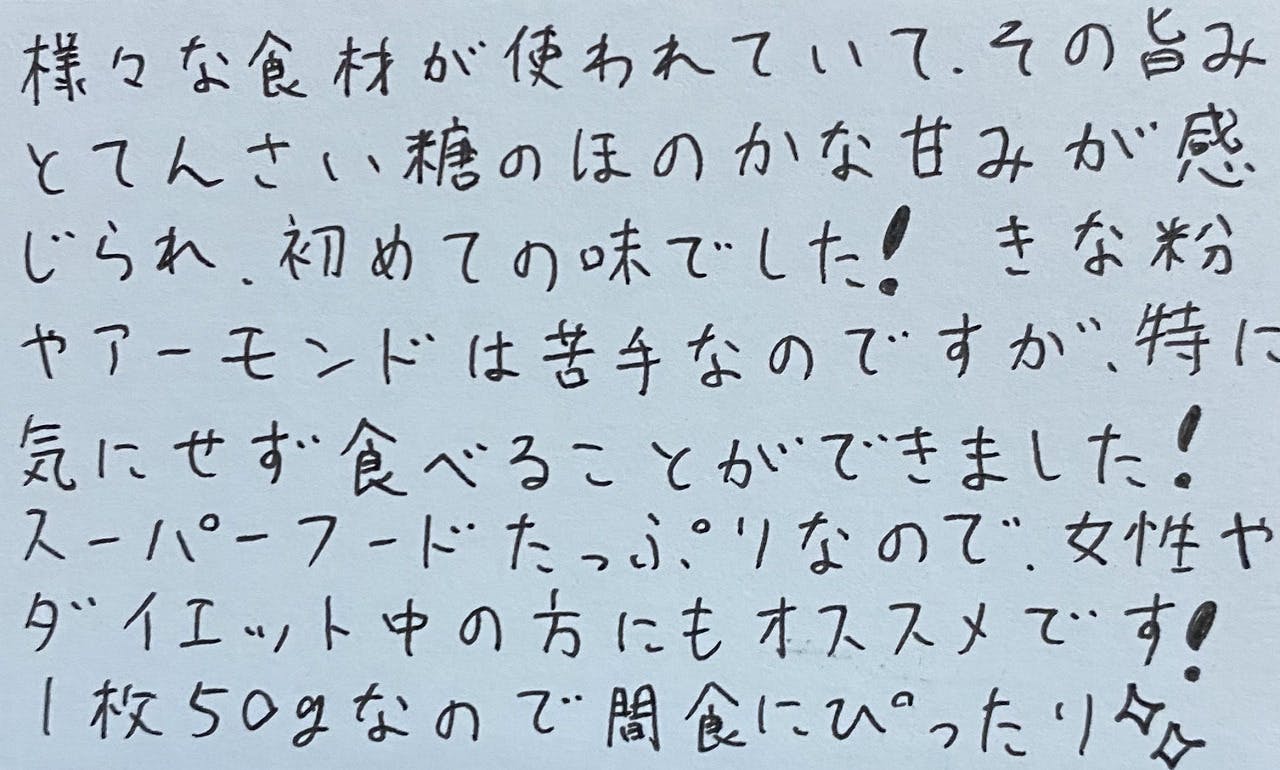 様々な食材が使われていて、その旨み
とてんさい糖のほのかな甘みが感
じられ、初めての味でした！ きな粉
やアーモンドは苦手なのですが、特に
気にせず食べることができました！
スーパーフードたっぷりなので、女性や
ダイエット中の方にもオススメです！
1枚50gなので間食にぴったり✨